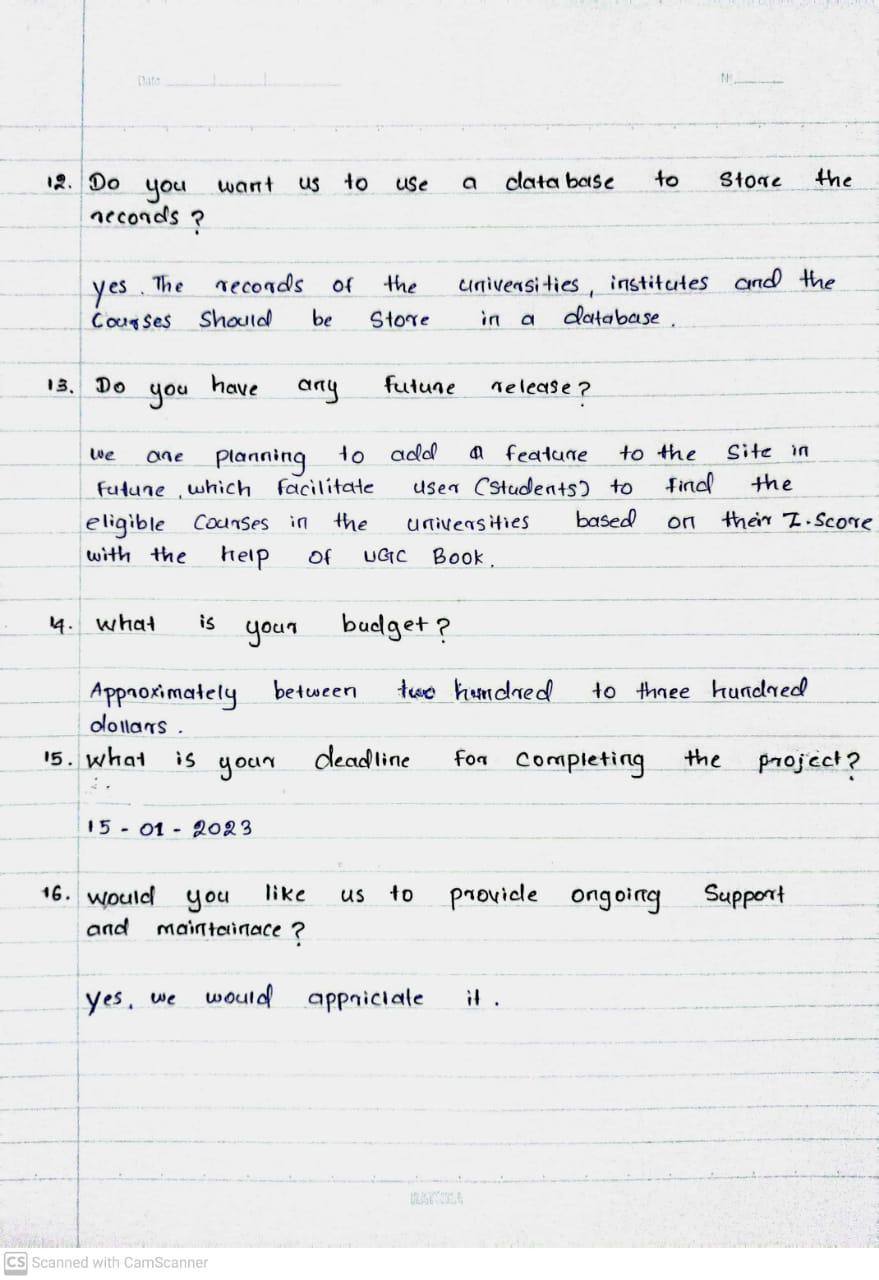 Date
No
12. Do you want us to use a database to store the
records?
yes. The records of the universities, institutes and the
Courses Should be Store in a database.
13. Do you have any future release?
we are planning to add a feature to the site in
future, which facilitate user (students) to find the
eligible Courses in the universities based on their Z-Score
with the help of UGC Book.
14. what is your budget?
Approximately between two hundred to three hundred
dollars.
15. what is your deadline for completing the project?
15-01-2023
16. would you like us to provide ongoing Support
and maintainace?
yes, we would appriciate it.
CS Scanned with CamScanner